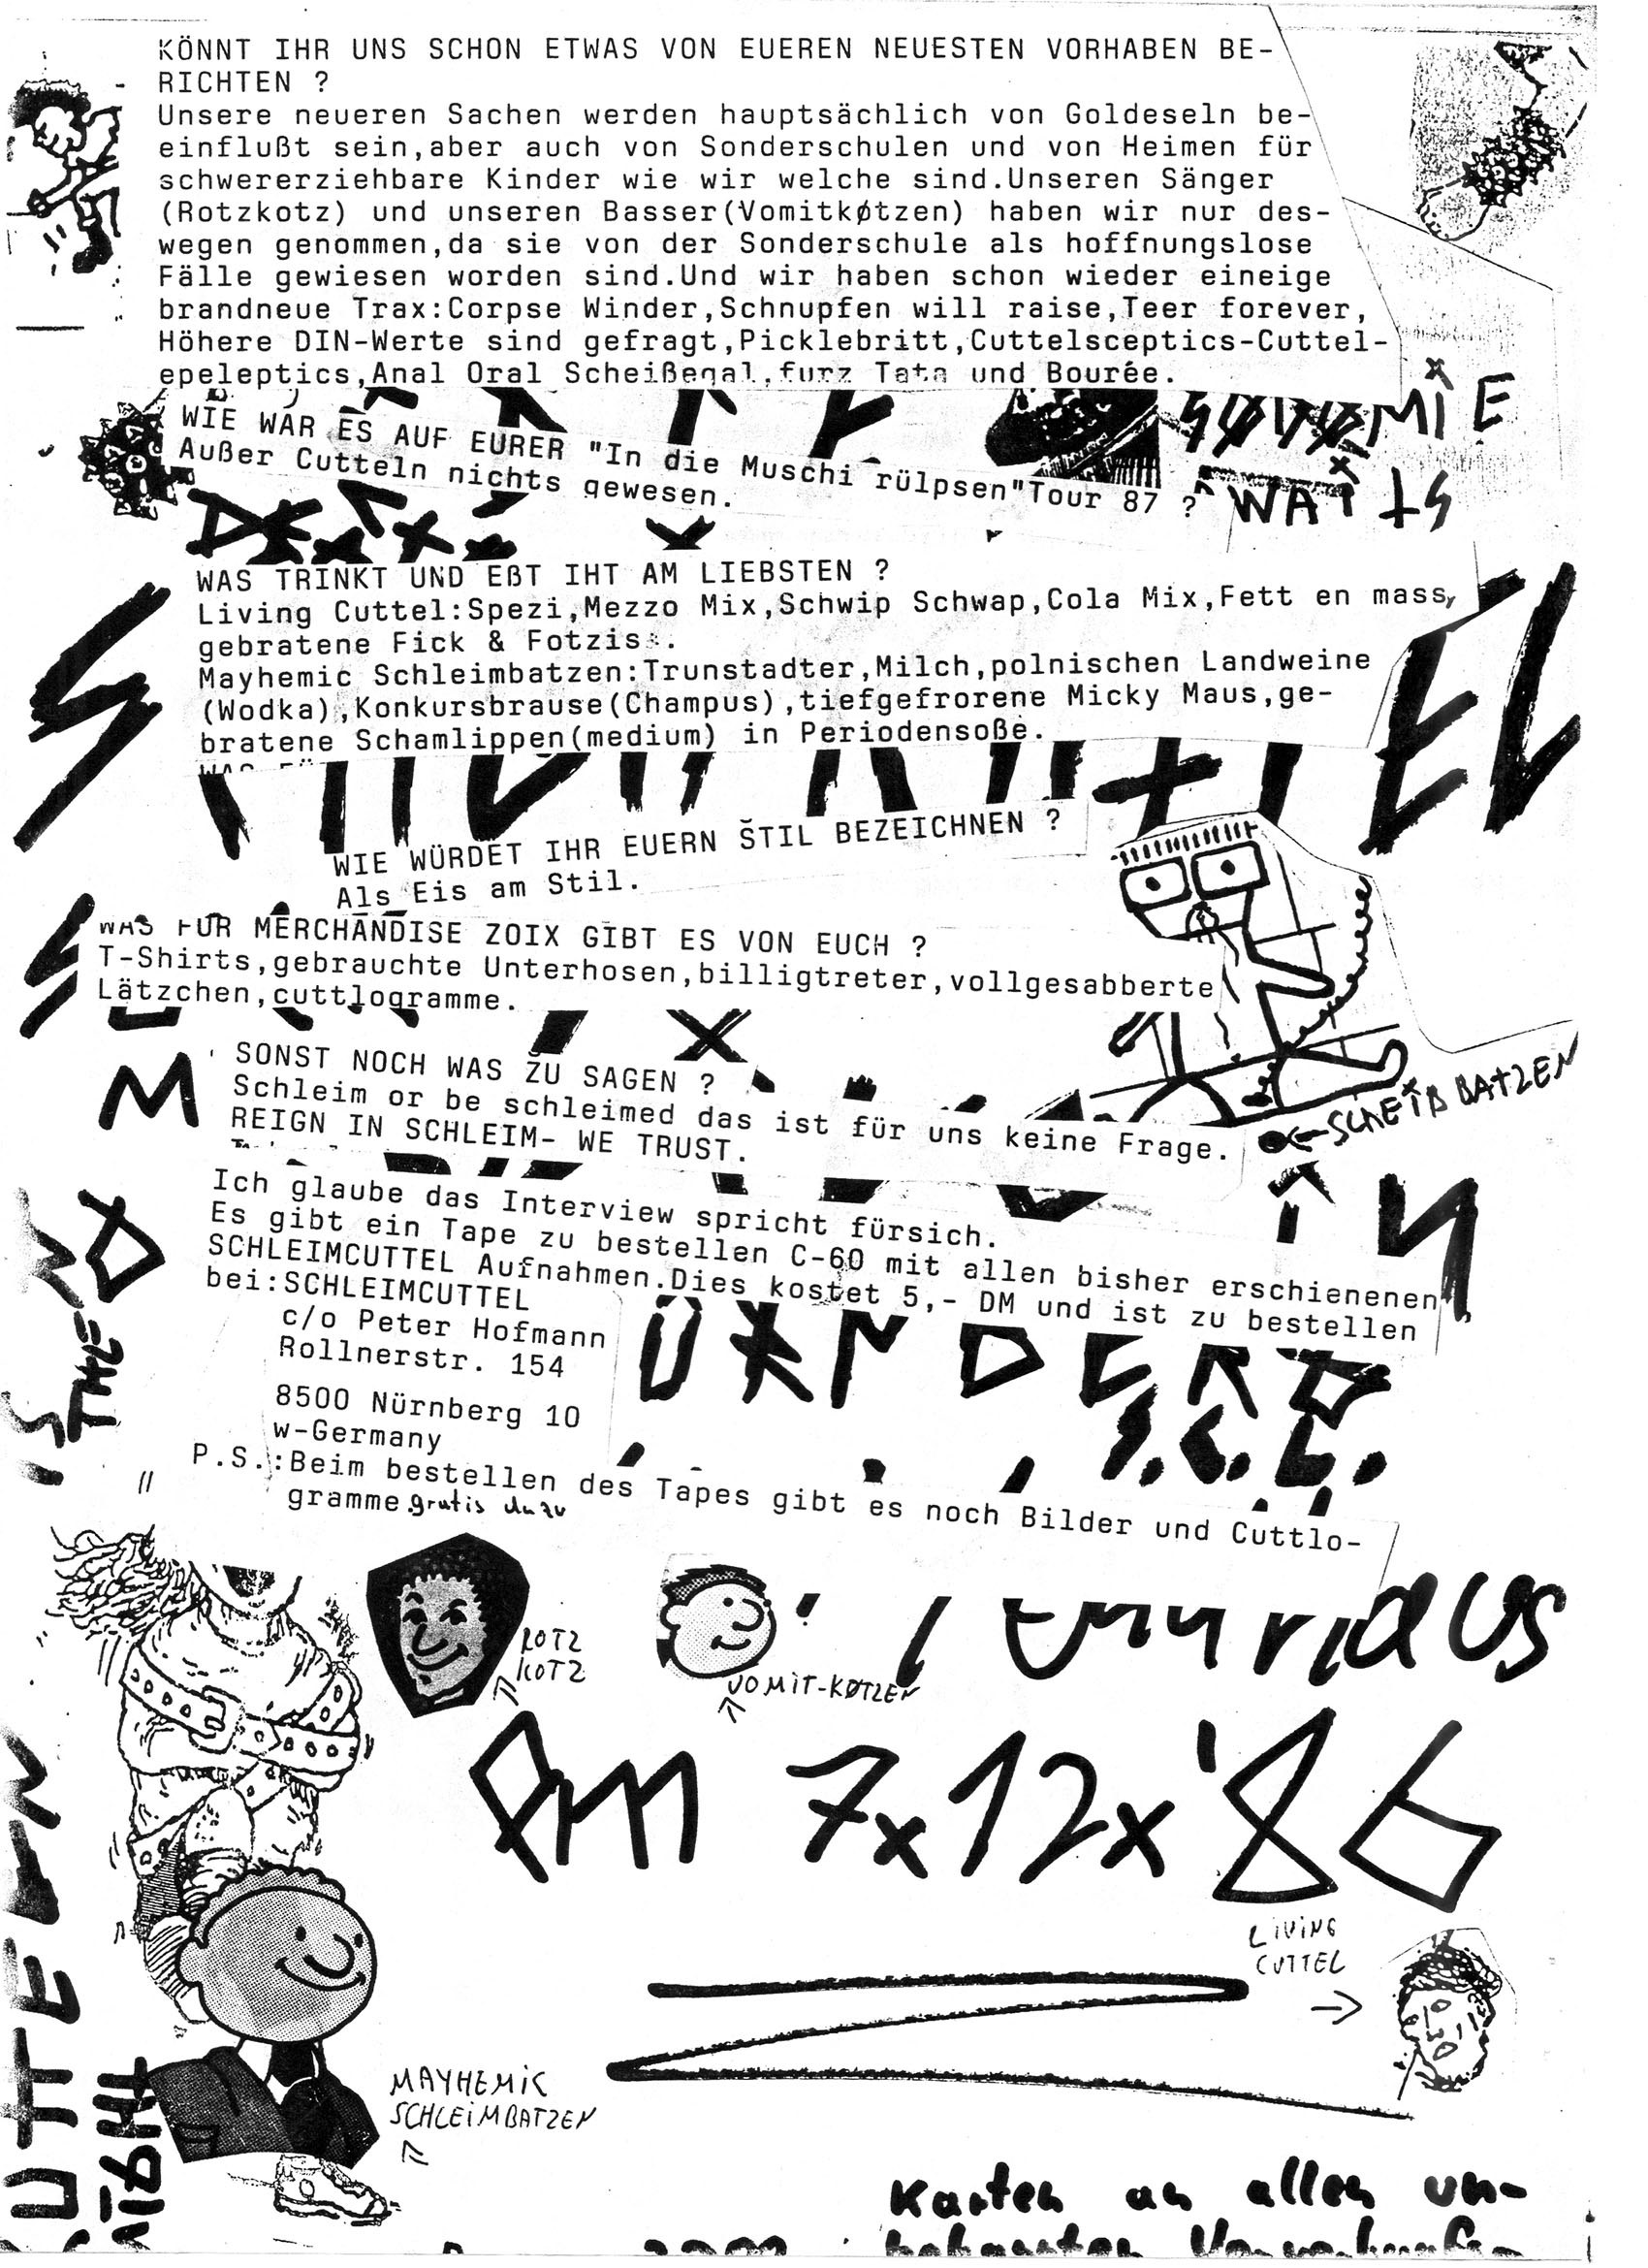 KÖNNT IHR UNS SCHON ETWAS VON EUEREN NEUESTEN VORHABEN BE-
RICHTEN ?
Unsere neueren Sachen werden hauptsächlich von Goldeseln be-
einflußt sein,aber auch von Sonderschulen und von Heimen für
schwererziehbare Kinder wie wir welche sind.Unseren Sänger
(Rotzkotz) und unseren Basser(Vomitkøtzen) haben wir nur des-
wegen genommen,da sie von der Sonderschule als hoffnungslose
Fälle gewiesen worden sind.Und wir haben schon wieder eineige
brandneue Trax:Corpse Winder,Schnupfen will raise,Teer forever,
Höhere DIN-Werte sind gefragt,Picklebritt,Cuttelsceptics-Cuttel-
epeleptics,Anal Oral Scheißegal,furz Tata und Bourée.
WIE WAR ES AUF EURER "In die Muschi rülpsen"Tour 87 ?
Außer Cutteln nichts gewesen.
WAS TRINKT UND EßT IHT AM LIEBSTEN ?
Living Cuttel:Spezi,Mezzo Mix,Schwip Schwap,Cola Mix,Fett en mass,
gebratene Fick & Fotzis.
Mayhemic Schleimbatzen:Trunstadter,Milch,polnischen Landweine
(Wodka),Konkursbrause(Champus),tiefgefrorene Micky Maus,ge-
bratene Schamlippen(medium) in Periodensoße.
WIE WÜRDET IHR EUERN STIL BEZEICHNEN ?
Als Eis am Stil.
WAS FÜR MERCHANDISE ZOIX GIBT ES VON EUCH ?
T-Shirts,gebrauchte Unterhosen,billigtreter,vollgesabberte
Lätzchen,cuttlogramme.
SONST NOCH WAS ZU SAGEN ?
Schleim or be schleimed das ist für uns keine Frage.
REIGN IN SCHLEIM- WE TRUST.
SCHEIß BATZEN
Ich glaube das Interview spricht fürsich.
Es gibt ein Tape zu bestellen C-60 mit allen bisher erschienenen
SCHLEIMCUTTEL Aufnahmen.Dies kostet 5,- DM und ist zu bestellen
bei:SCHLEIMCUTTEL
c/o Peter Hofmann
Rollnerstr. 154
8500 Nürnberg 10
w-Germany
P.S.:Beim bestellen des Tapes gibt es noch Bilder und Cuttlo-
gramme gratis dazu
ROTZ
KOTZ
VOMIT-KØTZEN
Am 7x12x'86
LIVING
CUTTEL
MAYHEMIC
SCHLEIMBATZEN
Karten an allen un-